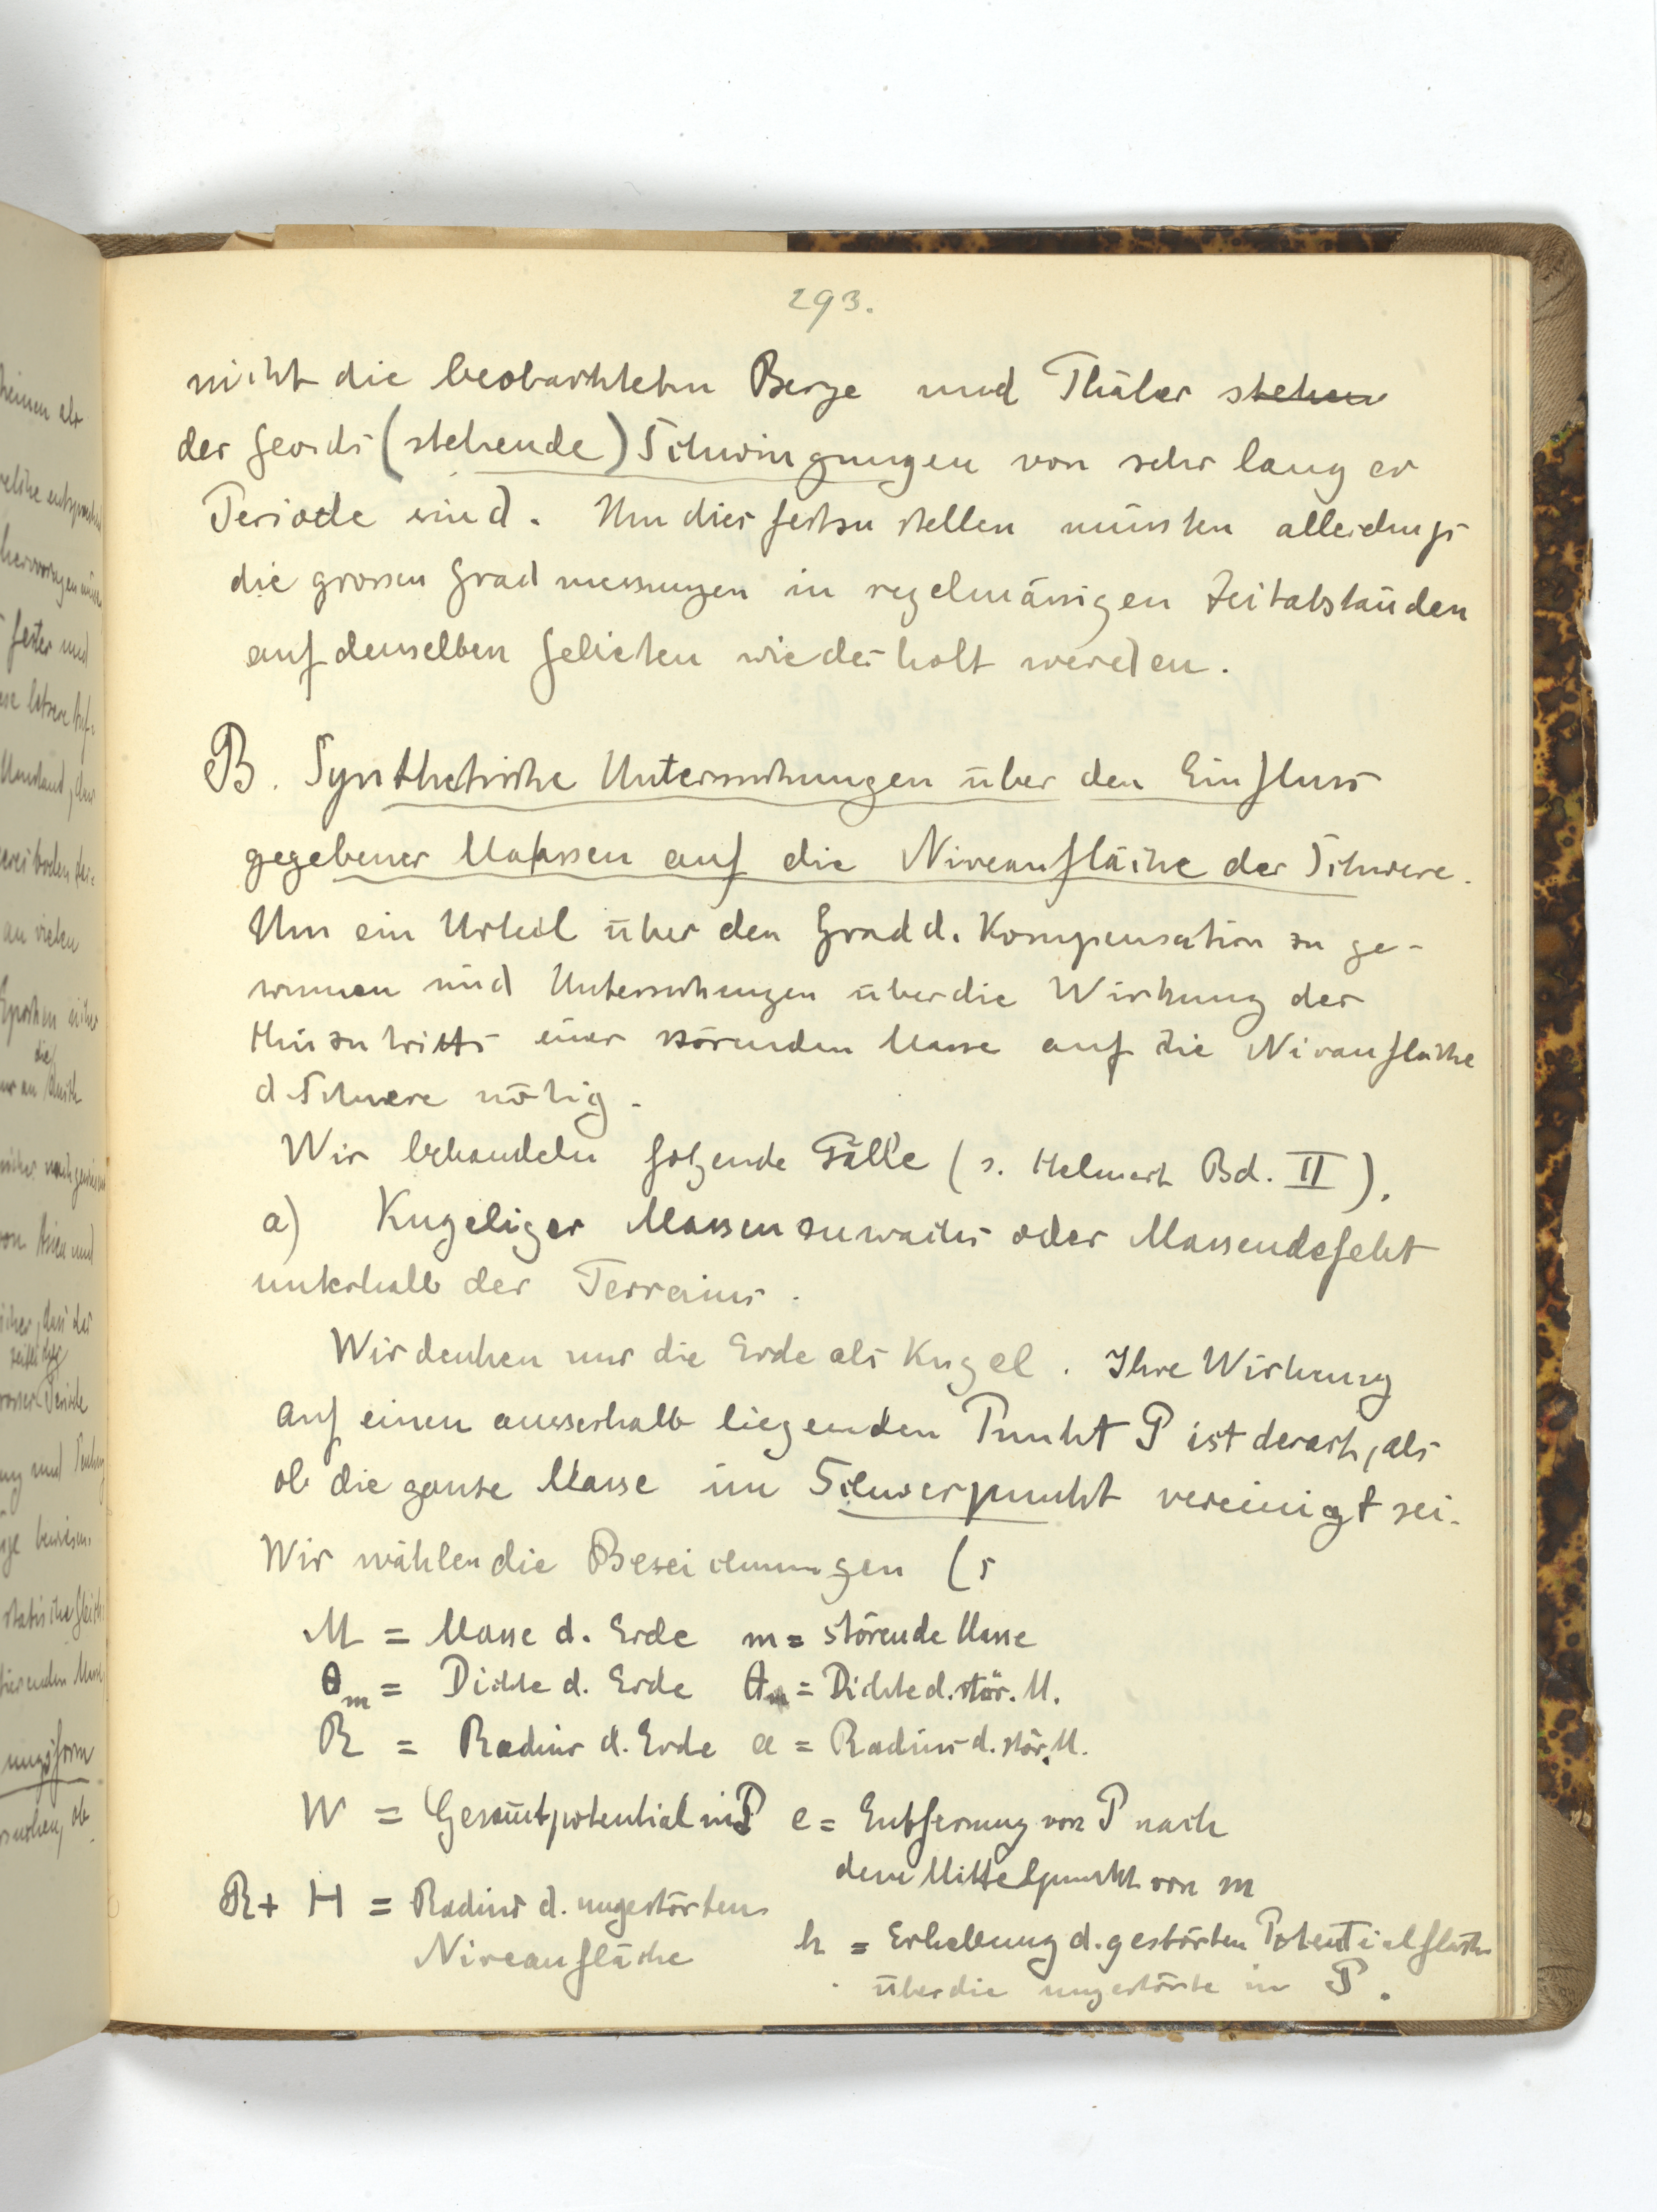 293.
nicht die beobachteten Berge und Thäler stehen
des Geoids (stehende) Schwingungen von sehr langer
Periode sind. Um dies festzustellen müssten allerdings
die grossen Gradmessungen in regelmässigen Zeitabständen
auf denselben Gebieten wiederholt werden.
B. Synthetische Untersuchungen über den Einfluss
gegebener Massen auf die Niveaufläche der Schwere.
Um ein Urteil über den Grad d. Kompensation zu ge-
winnen sind Untersuchungen über die Wirkung des
Hinzutritts einer störenden Masse auf die Niveaufläche
d. Schwere nötig.
Wir behandeln folgende Fälle (s. Helmert Bd. II).
a) Kugeliger Massenzuwachs oder Massendefekt
unterhalb des Terrains.
Wir denken uns die Erde als Kugel. Ihre Wirkung
auf einen ausserhalb liegenden Punkt P ist derart, als
ob die ganze Masse im Schwerpunkt vereinigt sei.
Wir wählen die Bezeichnungen (s
M = Masse d. Erde m = störende Masse
θm = Dichte d. Erde θ = Dichte d. stör. M.
R = Radius d. Erde a = Radius d. stör. M.
W = Gesamtpotential in P e = Entfernung von P nach
dem Mittelpunkt von m
R + H = Radius d. ungestörten
Niveaufläche
h = Erhebung d. gestörten Potentialfläche
über die ungestörte in P.